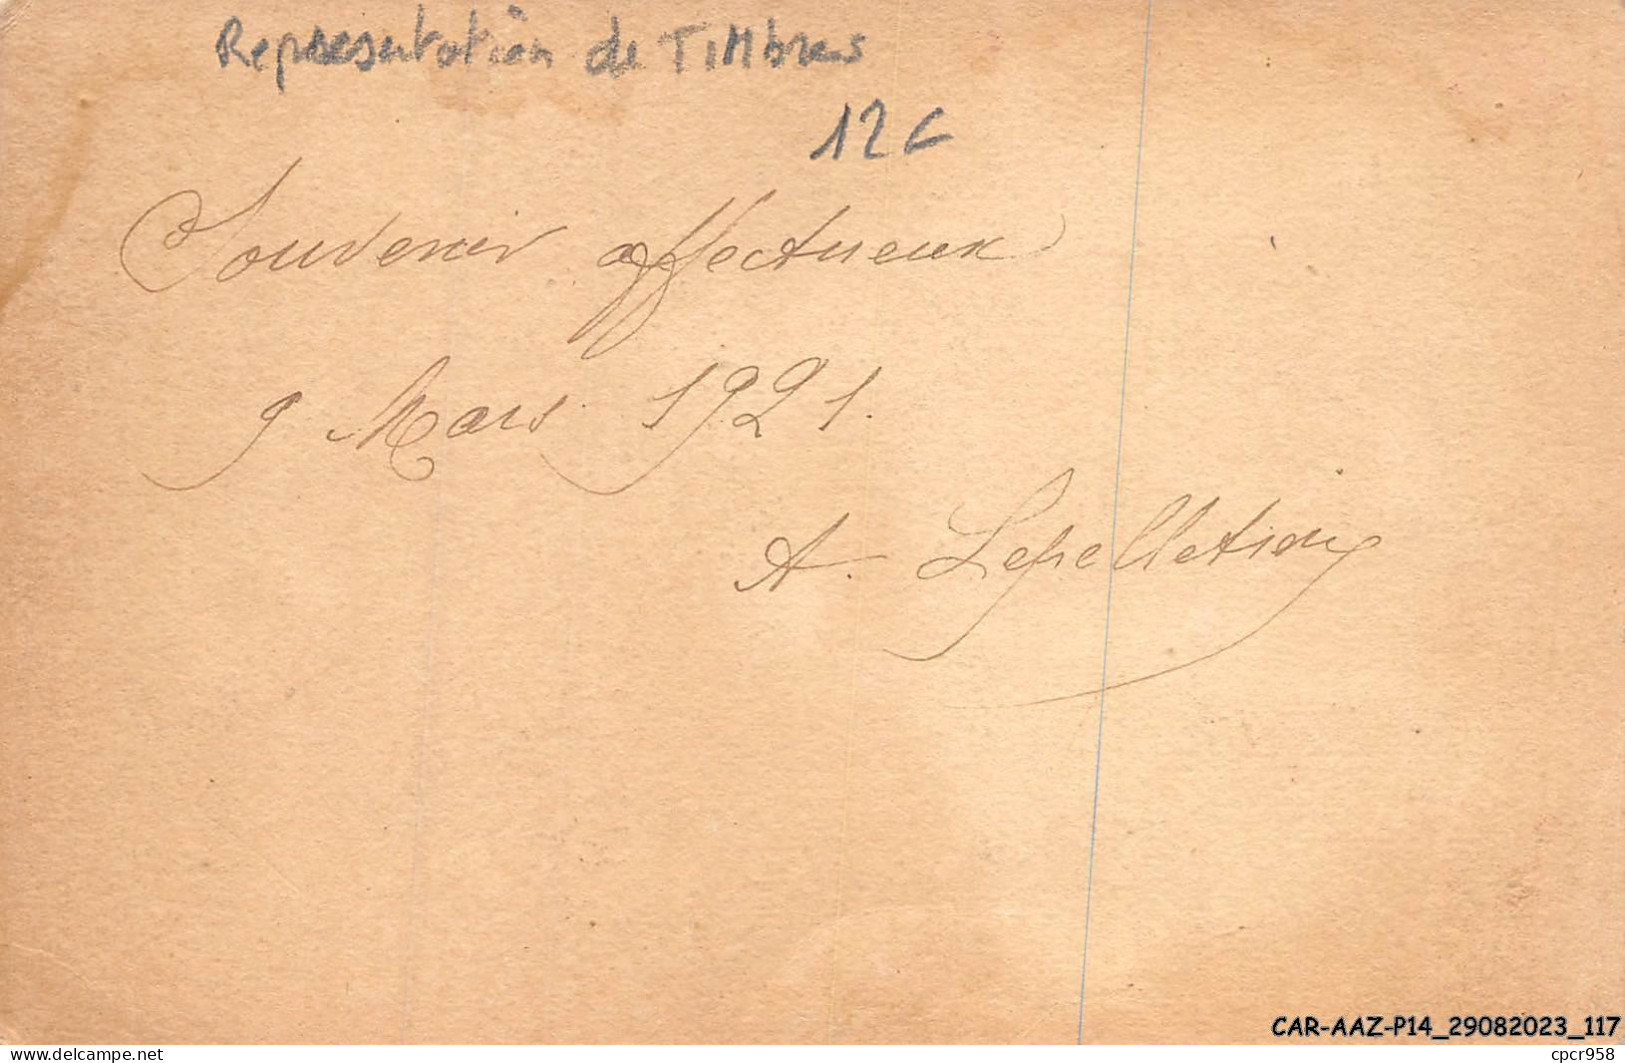 Représentation de TIMbres
12 €
Souvenir affectueux
9 Mars 1921.
A. Lepelletier
CAR-AAZ-P14_29082023_117
delcampe.net
cpcr958